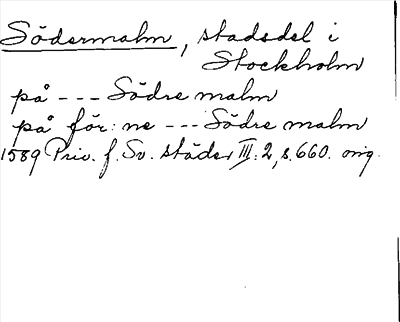 Södermalm, stadsdel i
Stockholm
på --- Södre malm
på för:ne --- Södre malm
1589 Priv. f. Sv. städer III:2, s. 660. orig.